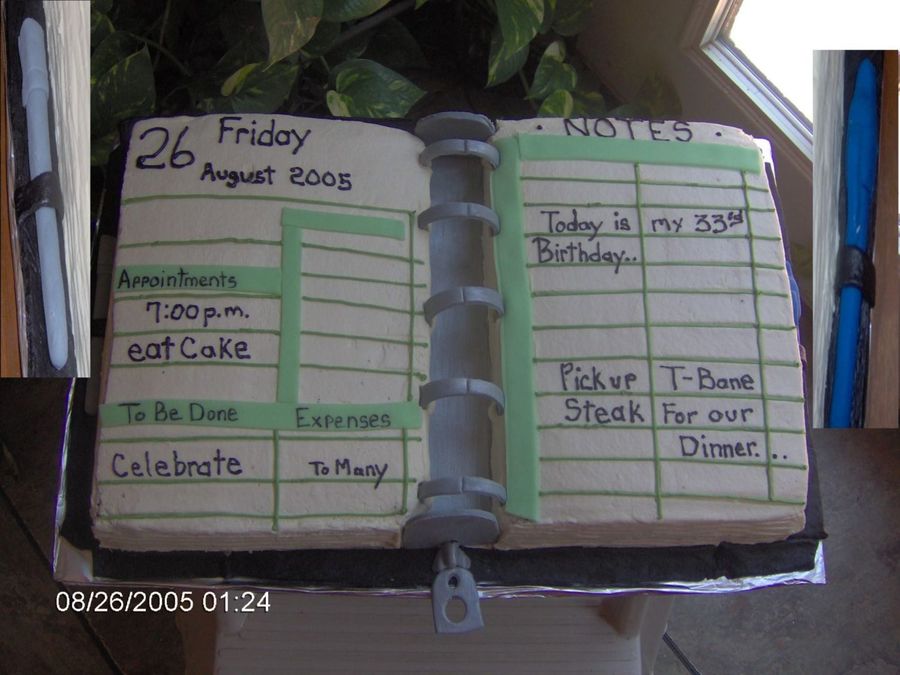 26 Friday
August 2005
Appointments
7:00 p.m.
eat Cake
To Be Done Expenses
Celebrate To Many
· NOTES ·
Today is my 33rd
Birthday..
Pick up T-Bane
Steak For our
Dinner...
08/26/2005 01:24